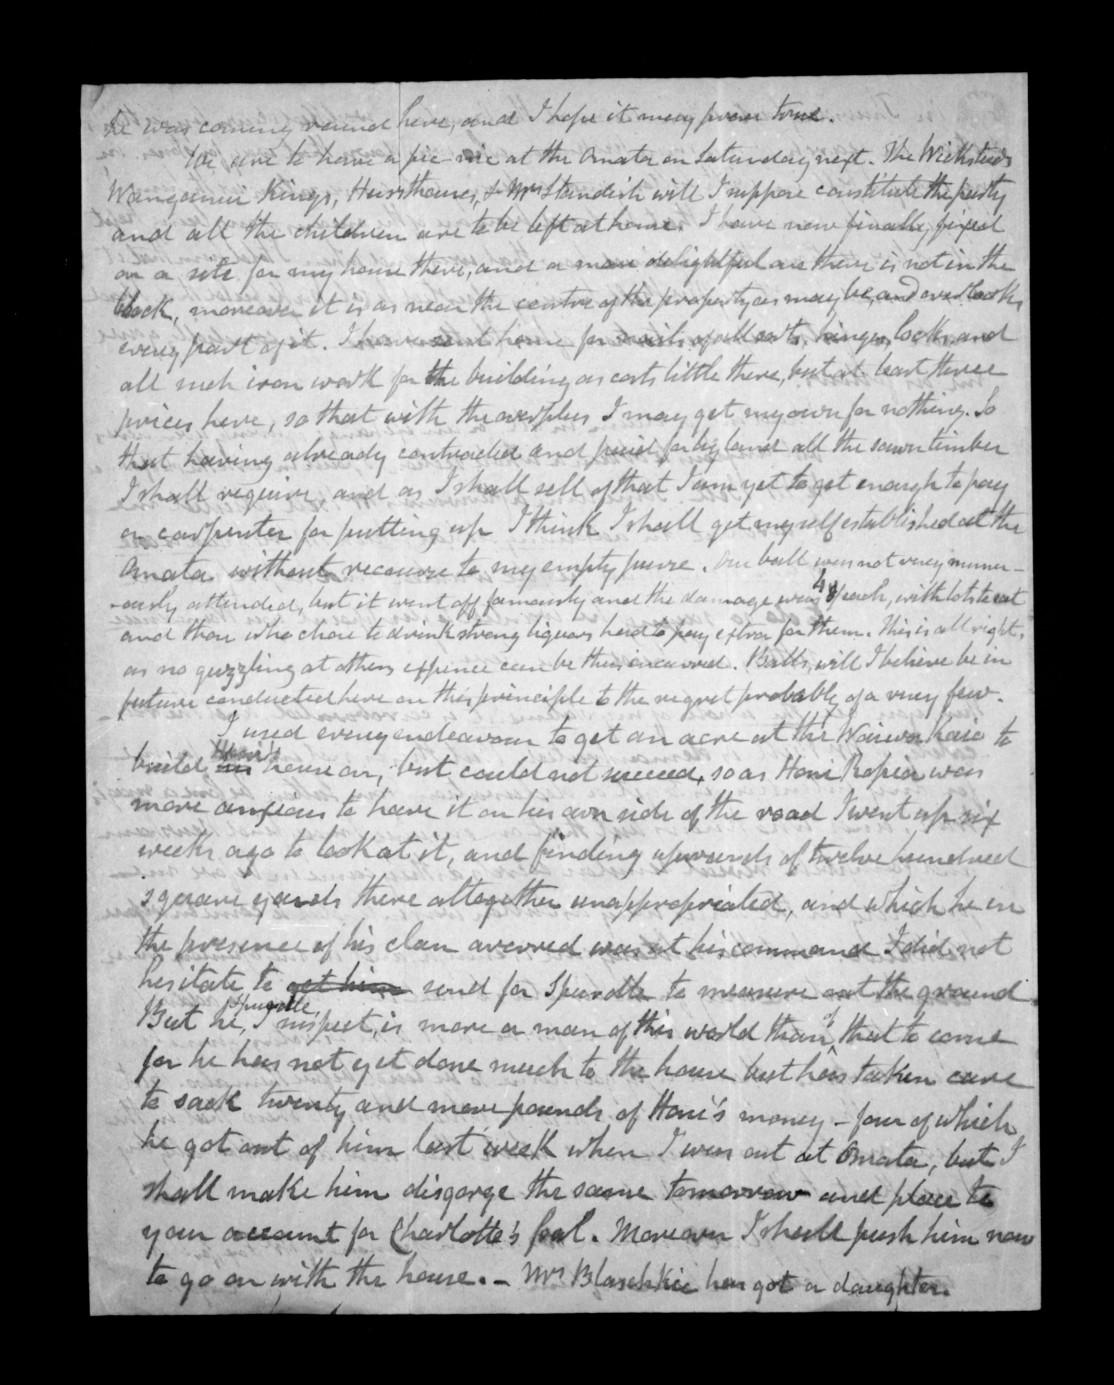 he was coming round here, and I hope it may prove true.
We are to have a pic nic at the Omata on Saturday next. The Wicksteeds
Wanganui Kings, Hursthouses, & Mrs Standish will I suppose constitute the party
and all the children are to be left at home. I have now finally fixed
on a site for my house there, and a more delightful one there is not in the
block, moreover it is as near the centre of the property as may be, and overlooks
every part of it. I have sent home for nails of all sorts, hinges, locks and
all such iron work for the building as costs little there, but at least three
prices here, so that with the overplus I may get my own for nothing. So
that having already contracted and paid for by land all the sawn timber
I shall require, and as I shall sell of that I am yet to get enough to pay
a carpenter for putting up I think I shall get myself established at the
Omata without recourse to my empty purse. Our ball was not very numer-
-ously attended, but it went off famously and the damage was 4/ each, with lots to eat
and those who chose to drink strong liquors had to pay extra for them. This is all right,
as no guzzling at others expence can be thus incurred. Balls, will I believe be in
future conducted here on this principle to the regret probably of a very few.
I used every endeavour to get an acre at the Waiwakaio to
build Honi's house on, but could not succeed, so as Honi Ropiha was
more anxious to have it on his own side of the road I went up six
weeks ago to look at it, and finding upwards of twelve hundred
square yards there altogether unappropriated, and which he in
the presence of his clan averred was at his command I did not
hesitate to get him send for Spurdle to measure out the ground.
But he, Spurdle, I suspect, is more a man of this world than of that to come
for he has not yet done much to the house but has taken care
to sack twenty and more pounds of Honi's money - four of which
he got out of him last week when I was out at Omata, but I
shall make him disgorge the same tomorrow and place to
your account for Charlotte's foal. Moreover I shall push him now
to go on with the house. - Mrs Blaschkie has got a daughter.